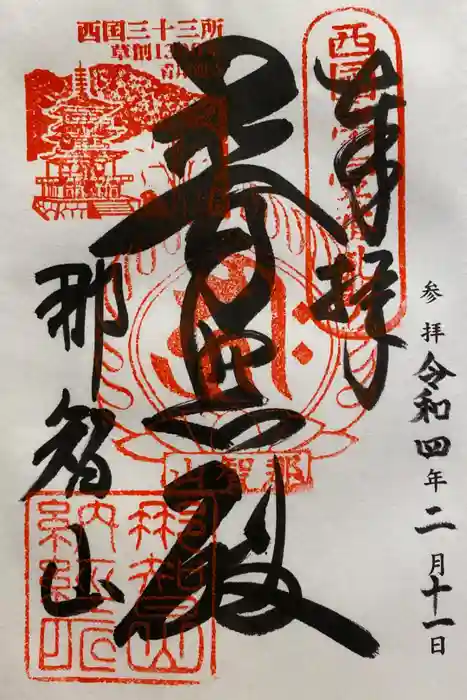 参拝 令和四年二月十一日
奉拝
西国第一番
普照殿
西国三十三所
草創1300年
山智那
那智山
那智山
納経所